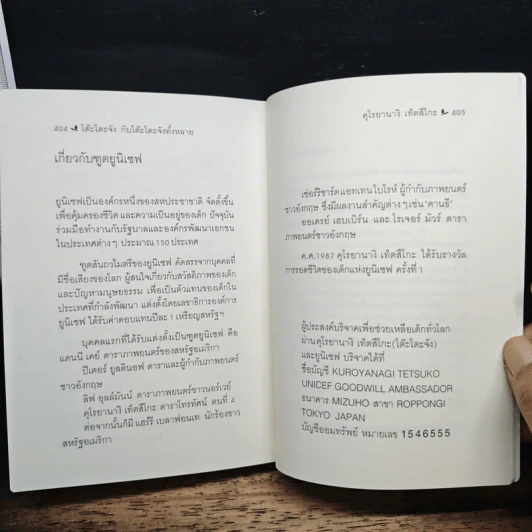 404 โต๊ะโตะจัง กับโต๊ะโตะจังทั้งหลาย
เกี่ยวกับทูตยูนิเซฟ
ยูนิเซฟเป็นองค์กรหนึ่งของสหประชาชาติ จัดตั้งขึ้น
เพื่อคุ้มครองชีวิต และความเป็นอยู่ของเด็ก ปัจจุบัน
ร่วมมือทำงานกับรัฐบาลและองค์กรพัฒนาเอกชน
ในประเทศต่างๆ ประมาณ 150 ประเทศ
ทูตสันถวไมตรีของยูนิเซฟ คัดสรรจากบุคคลที่
มีชื่อเสียงของโลก ผู้สนใจเกี่ยวกับสวัสดิภาพของเด็ก
และปัญหามนุษยธรรม เพื่อเป็นตัวแทนของเด็กใน
ประเทศที่กำลังพัฒนา แต่งตั้งโดยเลขาธิการองค์การ
ยูนิเซฟ ได้รับค่าตอบแทนปีละ 1 เหรียญสหรัฐฯ
บุคคลแรกที่ได้รับแต่งตั้งเป็นทูตยูนิเซฟ คือ
แดนนี เคย์ ดาราภาพยนตร์ของสหรัฐอเมริกา
ปีเตอร์ ยูสตินอฟ ดาราและผู้กำกับภาพยนตร์
ชาวอังกฤษ
ลิฟ อุลล์มันน์ ดาราภาพยนตร์ชาวนอร์เวย์
คุโรยานางิ เท็ตสึโกะ ดาราโทรทัศน์ คนที่ 4
ต่อจากนั้นก็มี แฮร์รี เบลาฟอนเท นักร้องชาว
สหรัฐอเมริกา
คุโรยานางิ เท็ตสึโกะ 405
เซอร์ริชาร์ด แอทเทนโบโรห์ ผู้กำกับภาพยนตร์
ชาวอังกฤษ ซึ่งมีผลงานสำคัญต่างๆ เช่น "คานธี"
ออเดรย์ เฮบเบิร์น และ โรเจอร์ มัวร์ ดารา
ภาพยนตร์ชาวอังกฤษ
ค.ศ.1987 คุโรยานางิ เท็ตสึโกะ ได้รับรางวัล
การรอดชีวิตของเด็กแห่งยูนิเซฟ ครั้งที่ 1
ผู้ประสงค์บริจาคเพื่อช่วยเหลือเด็กทั่วโลก
ผ่านคุโรยานางิ เท็ตสึโกะ (โต๊ะโตะจัง)
และยูนิเซฟ บริจาคได้ที่
ชื่อบัญชี KUROYANAGI TETSUKO
UNICEF GOODWILL AMBASSADOR
ธนาคาร MIZUHO สาขา ROPPONGI
TOKYO JAPAN
บัญชีออมทรัพย์ หมายเลข 1546555